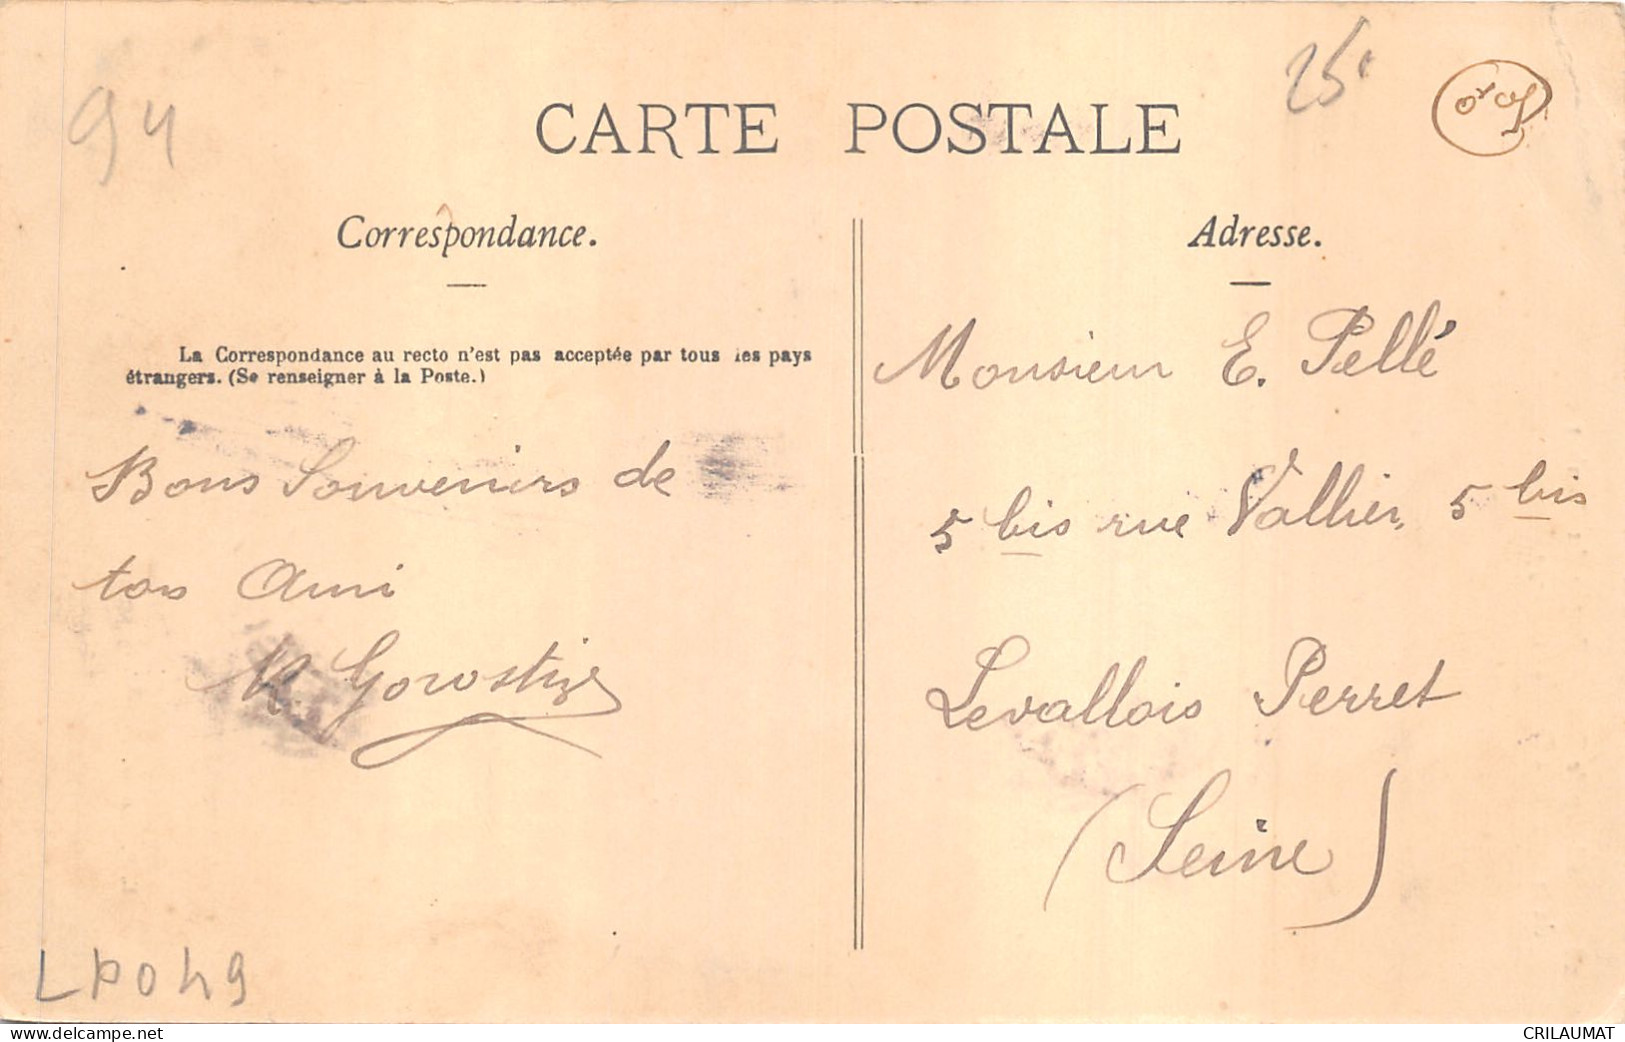 94
25
CARTE POSTALE
Correspondance.
La Correspondance au recto n'est pas acceptée par tous les pays
étrangers. (Se renseigner à la Poste.)
Bons Souvenirs de
ton Ami
Adresse.
Monsieur E. Pellé
5 bis rue Vallier, 5 bis
Levallois Perret
(Seine)
www.delcampe.net
CRILAUMAT